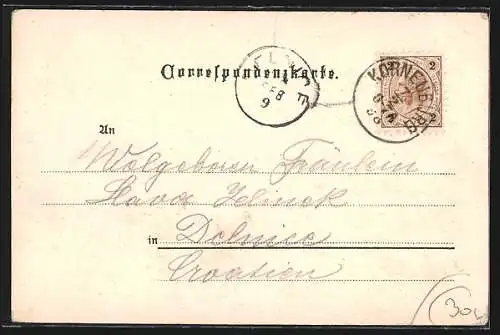 Correspondenzkarte.
2 2
KORNEUBURG
FEB
9
An
Wolgeboren Fräulein
Slava Jelinek
in Dolnice
Croatien
30